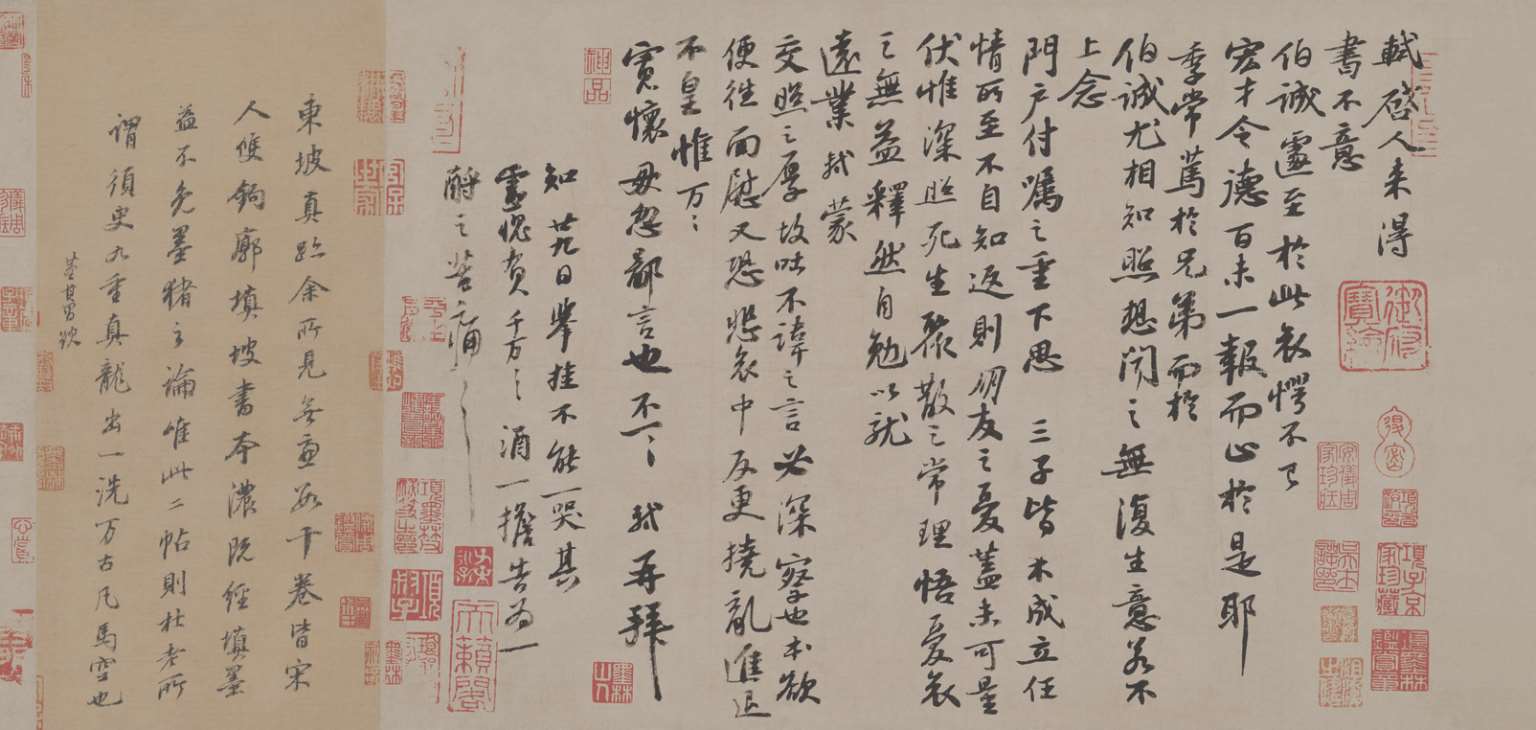 軾啓人來得
書不意
伯誠遽至於此哀愕不已
宏才令德百未一報而止於是耶
季常篤於兄弟而於
伯誠尤相知照想聞之無復生意若不
上念
門户付囑之重下思三子皆未成立任
情所至不自知返則朋友之憂蓋未可量
伏惟深照死生聚散之常理悟憂哀
之無益釋然自勉以就
遠業軾蒙
交照之厚故吐不諱之言必深察也本欲
便往面慰又恐悲哀中反更撓亂進退
不皇惟万〻
寬懷毋忽鄙言也不一〻軾再拜
知廿九日舉掛不能一哭其
靈愧負千万〻酒一擔告為一
酹之苦痛〻
東坡真跡余所見無慮數十卷皆宋
人雙鉤廓填坡書本濃既經填墨
益不免墨豬之論唯此二帖則杜老所
謂須臾九重真龍出一洗万古凡馬空也
董其昌題
神品
御府寶繪
項子京家珍藏
項墨林鑑賞章
墨林山人
天籟閣